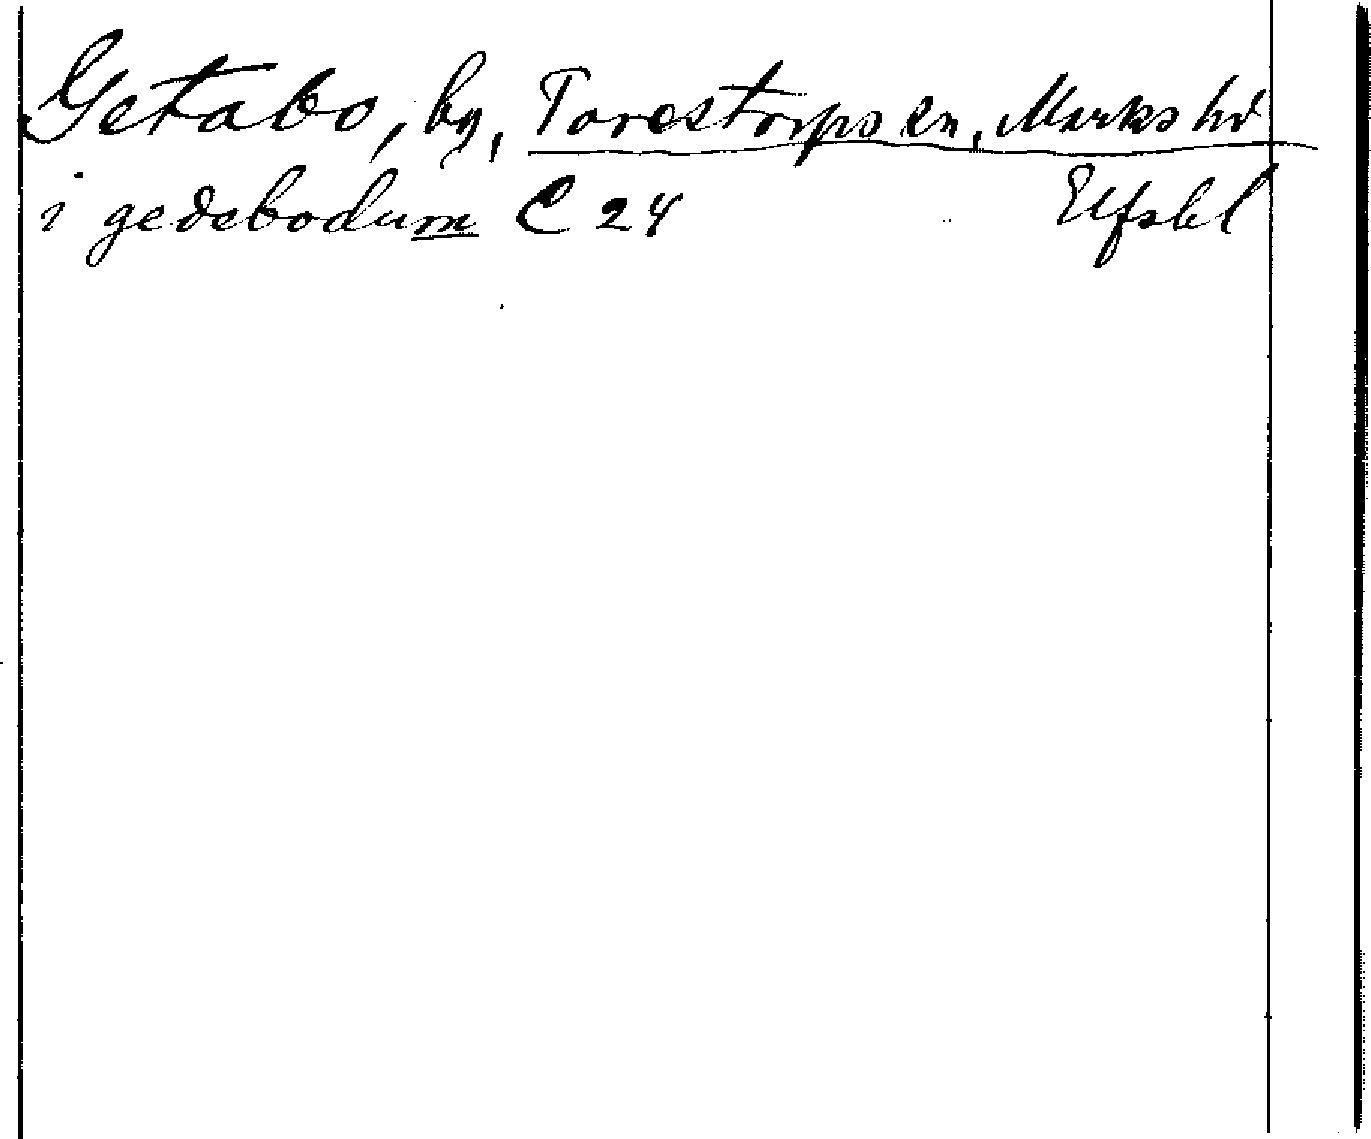 Getabo, by, Torestorps sn, Marks hd
i gedebodum C 24 Elfsbl